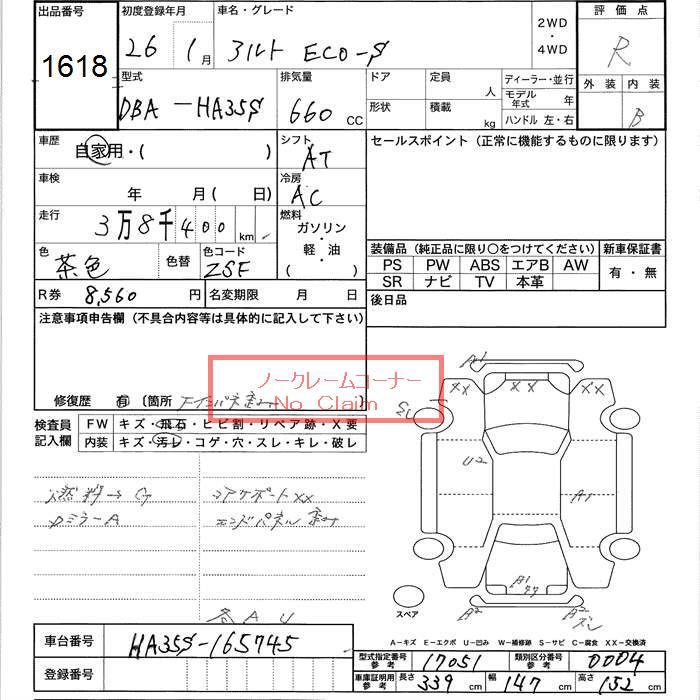 出品番号
1618
初度登録年月
26 1月
車名・グレード
アルト ECO-S
2WD
・
4WD
評価点
R
外装 内装
B
型式
DBA-HA35S
排気量
660 CC
ドア
定員
人
形状
積載
kg
ディーラー・並行
モデル年式 年
ハンドル 左・右
車歴
自家用・( )
シフト
AT
セールスポイント(正常に機能するものに限ります)
車検
年 月( 日)
冷房
AC
走行
3万8千400 km
燃料
ガソリン
・
軽・油
( )
色
茶色
色替
色コード
ZSF
装備品(純正品に限り○をつけてください)
新車保証書
PS PW ABS エアB AW
SR ナビ TV 本革
有・無
R券 8,560 円
名変期限 月 日
後日品
注意事項申告欄(不具合内容等は具体的に記入して下さい)
ノークレームコーナー
No Claim
修復歴 有 〔箇所
検査員
記入欄
FW キズ・飛石・ヒビ割・リペア跡・X要
内装 キズ・汚レ・コゲ・穴・スレ・キレ・破レ
燃料→G
コアサポートXX
ドミラーA
エンドパネル歪み
各AU
A1
XX XX
U2
A1
A1
A2
A2
スペア
A-キズ E-エクボ U-凹み W-補修跡 S-サビ C-腐食 XX-交換済
車台番号
HA35S-165745
登録番号
型式指定番号
参考
17051
類別区分番号
参考
0004
車庫証明用
参考
長さ 339 cm
幅 147 cm
高さ 152 cm